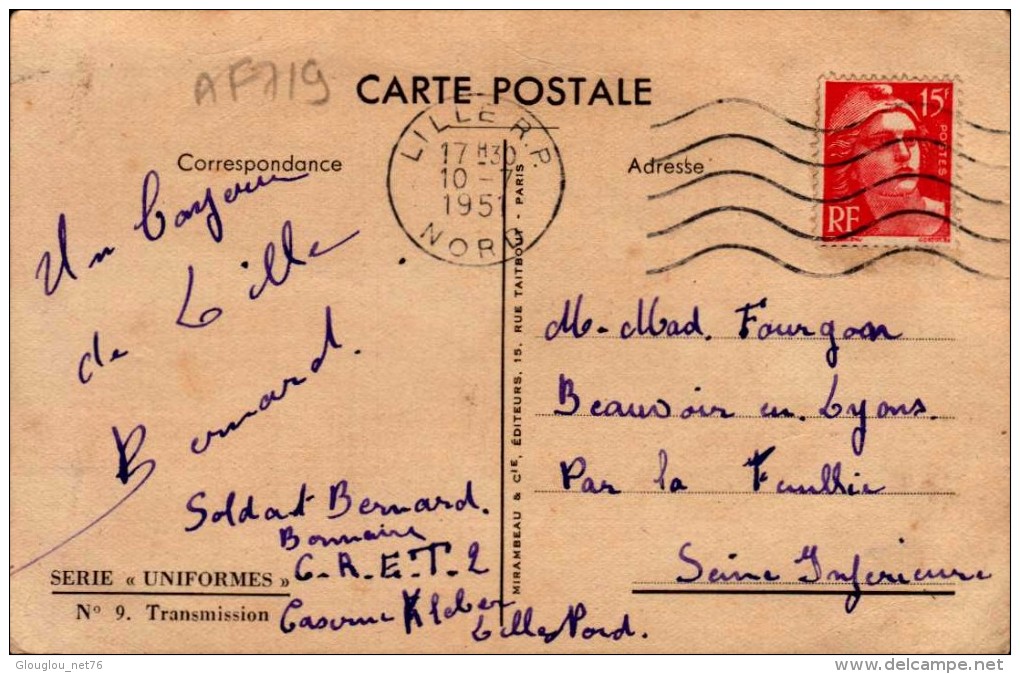 AF719
CARTE POSTALE
Correspondance
Adresse
LILLE R.P.
17 H 30
10 - 7
1951
NORD
15F
POSTES
RF
Un
de Lille
Bernard.
Soldat Bernard.
Bonnaire
C.R.E.T.2
Caserne Kleber
Lille Nord.
SERIE « UNIFORMES »
N° 9. Transmission
MIRAMBEAU & CIE, ÉDITEURS, 15, RUE TAITBOUT - PARIS
M. Mad. Fourgon
Beauvoir en Lyons.
Par la Feuillie
Seine Inférieure
Glouglou_net76
http://www.delcampe.net